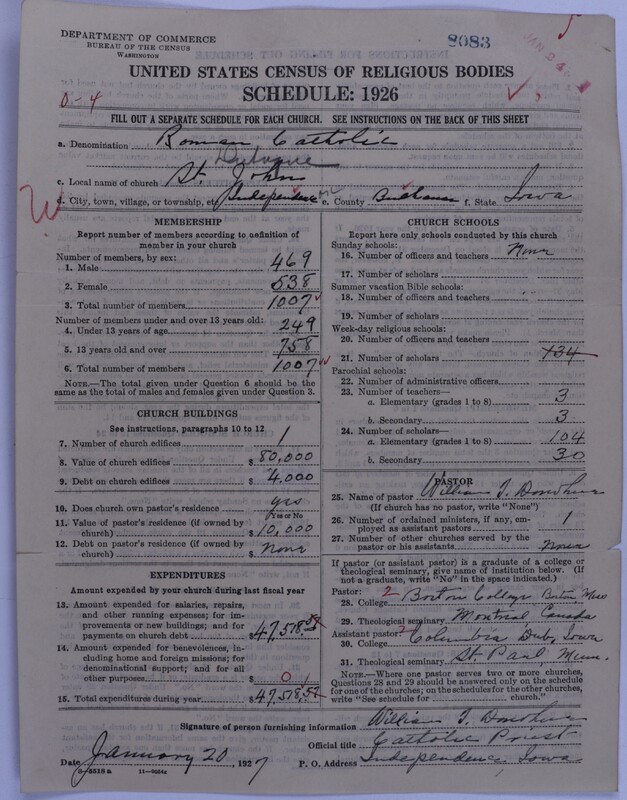 DEPARTMENT OF COMMERCE
BUREAU OF THE CENSUS
WASHINGTON
8083
JAN 24
UNITED STATES CENSUS OF RELIGIOUS BODIES
SCHEDULE: 1926
0-4
FILL OUT A SEPARATE SCHEDULE FOR EACH CHURCH. SEE INSTRUCTIONS ON THE BACK OF THIS SHEET
a. Denomination Roman Catholic
Dubuque
c. Local name of church St. Johns
d. City, town, village, or township, etc. Independence e. County Buchanan f. State Iowa
MEMBERSHIP
Report number of members according to definition of member in your church
Number of members, by sex:
1. Male 469
2. Female 538
3. Total number of members 1007
Number of members under and over 13 years old:
4. Under 13 years of age 249
5. 13 years old and over 758
6. Total number of members 1007
NOTE.—The total given under Question 6 should be the same as the total of males and females given under Question 3.
CHURCH BUILDINGS
See instructions, paragraphs 10 to 12
7. Number of church edifices 1
8. Value of church edifices $ 80,000
9. Debt on church edifices $ 4,000
10. Does church own pastor's residence? yes
Yes or No
11. Value of pastor's residence (if owned by church) $ 10,000
12. Debt on pastor's residence (if owned by church) $ None
EXPENDITURES
Amount expended by your church during last fiscal year
13. Amount expended for salaries, repairs, and other running expenses; for improvements or new buildings; and for payments on church debt $ 47,578.57
14. Amount expended for benevolences, including home and foreign missions; for denominational support; and for all other purposes $ 0
15. Total expenditures during year $ 47,578.57
CHURCH SCHOOLS
Report here only schools conducted by this church
Sunday schools:
16. Number of officers and teachers None
17. Number of scholars
Summer vacation Bible schools:
18. Number of officers and teachers
19. Number of scholars
Week-day religious schools:
20. Number of officers and teachers
21. Number of scholars 134
Parochial schools:
22. Number of administrative officers
23. Number of teachers—
a. Elementary (grades 1 to 8) 3
b. Secondary 3
24. Number of scholars—
a. Elementary (grades 1 to 8) 104
b. Secondary 30
PASTOR
25. Name of pastor William T. Donohue
(If church has no pastor, write "None")
26. Number of ordained ministers, if any, employed as assistant pastors 1
27. Number of other churches served by the pastor or his assistants None
If pastor (or assistant pastor) is a graduate of a college or theological seminary, give name of institution below. (If not a graduate, write "No" in the space indicated.)
Pastor: 2
28. College Boston College Boston Mass
29. Theological seminary Montreal Canada
Assistant pastor:
30. College Columbia Dub, Iowa
31. Theological seminary St. Paul, Minn.
NOTE.—Where one pastor serves two or more churches, Questions 28 and 29 should be answered only on the schedule for one of the churches; on the schedules for the other churches, write "See schedule for ........ church."
Signature of person furnishing information William T. Donohue
Official title Catholic Priest
Date January 20, 1927 P. O. Address Independence, Iowa